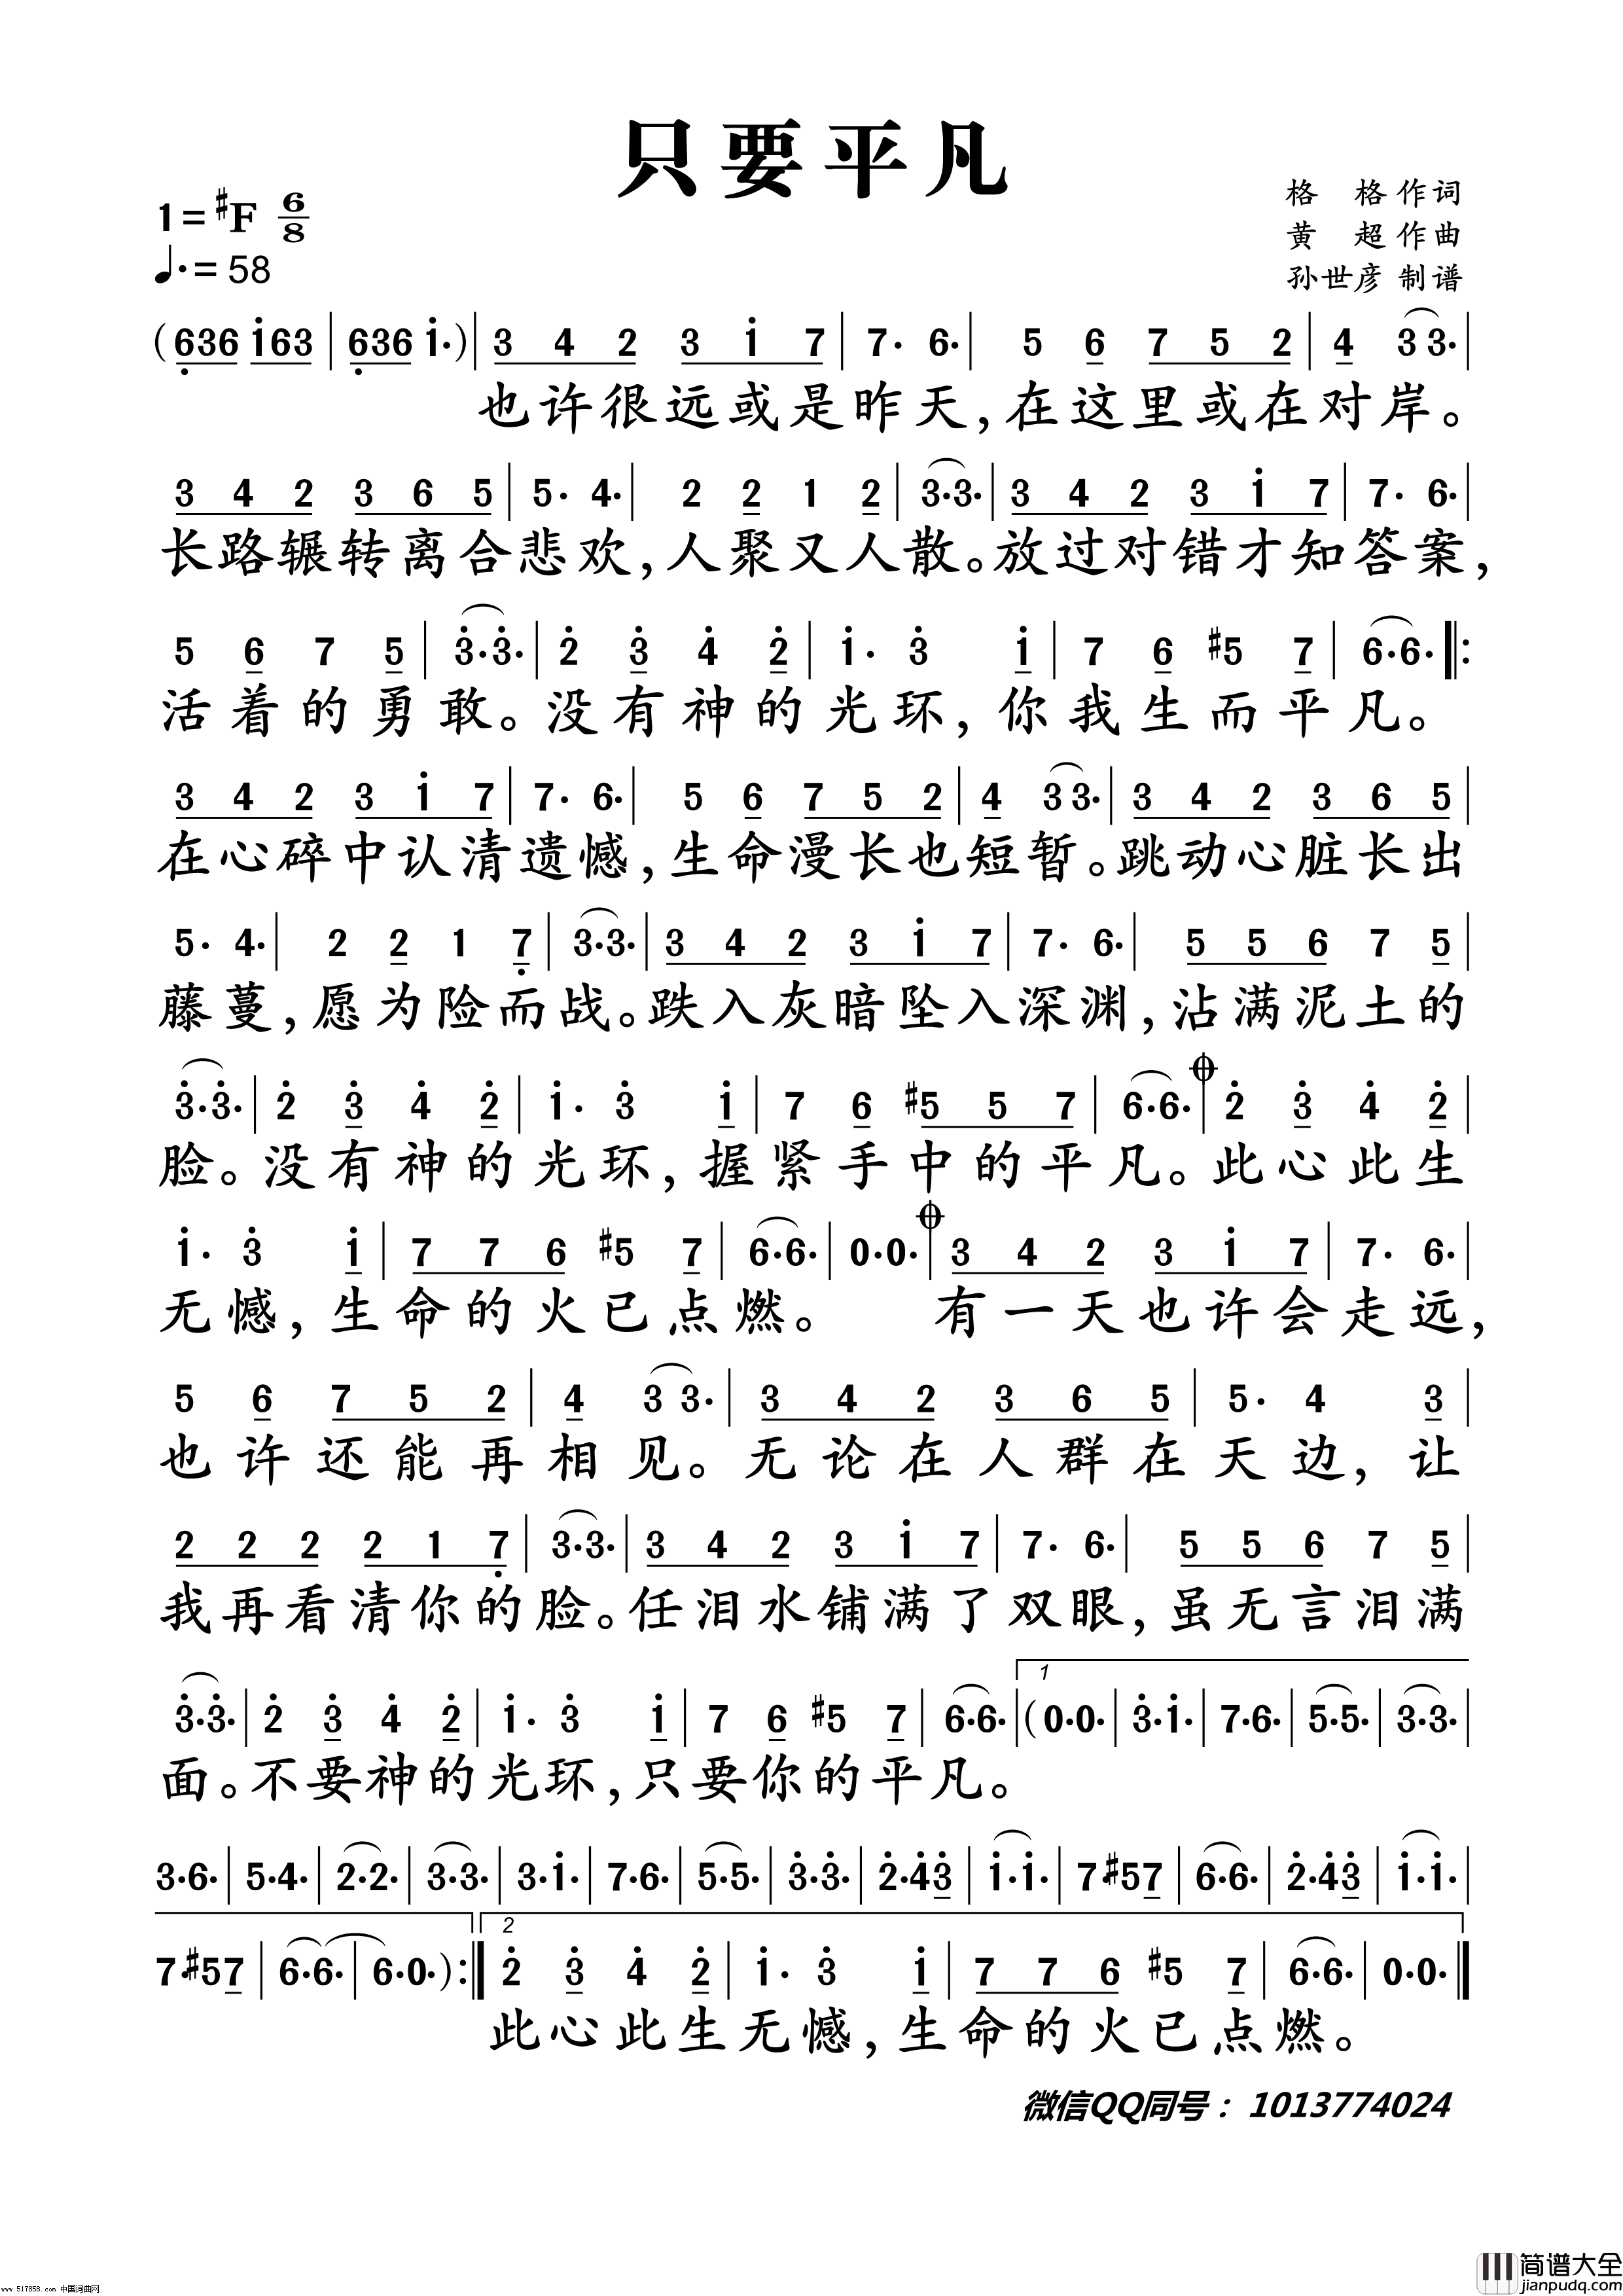 只要平凡
1=#F 6/8
♩.=58
格 格 作词
黄 超 作曲
孙世彦 制谱
(636 i63 | 636 i·) | 3 4 2 3 i 7 | 7· 6· | 5 6 7 5 2 | 4 3 3· |
也许很远或是昨天,在这里或在对岸。
3 4 2 3 6 5 | 5· 4· | 2 2 1 2 | 3·3· | 3 4 2 3 i 7 | 7· 6· |
长路辗转离合悲欢,人聚又人散。放过对错才知答案,
5 6 7 5 | 3·3· | 2 3 4 2 | i· 3 i | 7 6 #5 7 | 6·6· ‖:
活着的勇敢。没有神的光环,你我生而平凡。
3 4 2 3 i 7 | 7· 6· | 5 6 7 5 2 | 4 3 3· | 3 4 2 3 6 5 |
在心碎中认清遗憾,生命漫长也短暂。跳动心脏长出
5· 4· | 2 2 1 7 | 3·3· | 3 4 2 3 i 7 | 7· 6· | 5 5 6 7 5 |
藤蔓,愿为险而战。跌入灰暗坠入深渊,沾满泥土的
3·3· | 2 3 4 2 | i· 3 i | 7 6 #5 5 7 | 6·6· | 2 3 4 2 |
脸。没有神的光环,握紧手中的平凡。此心此生
i· 3 i | 7 7 6 #5 7 | 6·6· | 0·0· | 3 4 2 3 i 7 | 7· 6· |
无憾,生命的火已点燃。 有一天也许会走远,
5 6 7 5 2 | 4 3 3· | 3 4 2 3 6 5 | 5· 4 3 |
也许还能再相见。无论在人群在天边,让
2 2 2 2 1 7 | 3·3· | 3 4 2 3 i 7 | 7· 6· | 5 5 6 7 5 |
我再看清你的脸。任泪水铺满了双眼,虽无言泪满
1
3·3· | 2 3 4 2 | i· 3 i | 7 6 #5 7 | 6·6· | (0·0· | 3·i· | 7·6· | 5·5· | 3·3· |
面。不要神的光环,只要你的平凡。
3·6· | 5·4· | 2·2· | 3·3· | 3·i· | 7·6· | 5·5· | 3·3· | 2·43 | i·i· | 7·#57 | 6·6· | 2·43 | i·i· |
2
7·#57 | 6·6· | 6·0·) :‖ 2 3 4 2 | i· 3 i | 7 7 6 #5 7 | 6·6· | 0·0· ‖
此心此生无憾,生命的火已点燃。
微信QQ同号：1013774024
简谱大全
jianpudq.com
www.517858.com 中国词曲网